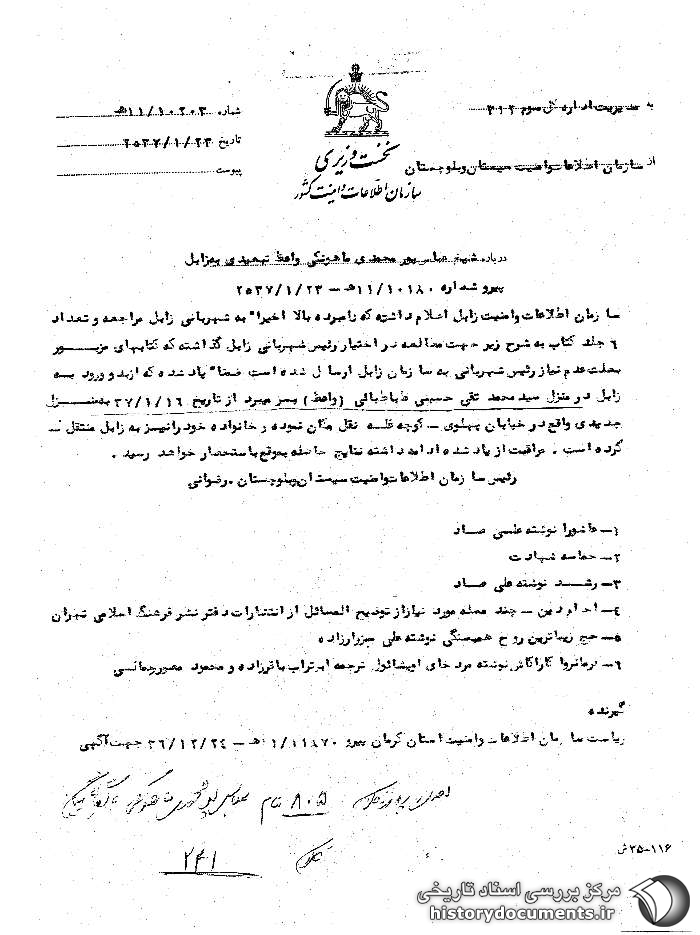 به مدیریت اداره کل سوم ۳۱۲
شماره ۱۱/۱۰۲۰۳هـ
از سازمان اطلاعات وامنیت سیستان وبلوچستان
تاریخ ۲۵۳۷/۱/۲۳
پیوست
نخست وزیری
سازمان اطلاعات و امنیت کشور
درباره شیخ عباس پور محمدی ماهونکی واعظ تبعیدی به زابل
پیرو شماره ۱۱/۱۰۱۸۰هـ – ۲۵۳۷/۱/۲۳
سازمان اطلاعات وامنیت زابل اعلام داشته که نامبرده بالا اخیرا" به شهربانی زابل مراجعه و تعداد
۶ جلد کتاب به شرح زیر جهت مطالعه در اختیار رئیس شهربانی زابل گذاشته که کتابهای مزبور
بعلت عدم نیاز رئیس شهربانی به سازمان زابل ارسال شده است ضمنا" یاد شده که از بدو ورود به
زابل در منزل سید محمد تقی حسینی طباطبائی (واعظ) بسر میبرد از تاریخ ۳۷/۱/۱۶ به منزل
جدیدی واقع در خیابان پهلوی – کوچه قلعه نقل مکان نموده و خانواده خود را نیز به زابل منتقل
کرده است . مراقبت از یاد شده ادامه داشته نتایج حاصله بموقع باستحضار خواهد رسید .
رئیس سازمان اطلاعات وامنیت سیستان وبلوچستان . رضوانی
۱– عاشورا نوشته علی صاد
۲– حماسه شهادت
۳– رشد نوشته علی صاد
۴– احکام دین – چند مسئله مورد نیاز از توضیح المسائل از انتشارات دفتر نشر فرهنگ اسلامی تهران
۵– حج زیباترین روح همبستگی نوشته علی
۶– نوشته مرد خای ترجمه ابوتراب باقرزاده و محمود
گیرنده
ریاست سازمان اطلاعات وامنیت استان کرمان پیرو ۱/۱۱۸۷۰هـ – ۳۶/۱۲/۲۴ جهت آگهی
۸۰۵
۲۴۱
۲۵-۱۱۶ش
مرکز بررسی اسناد تاریخی
historydocuments.ir